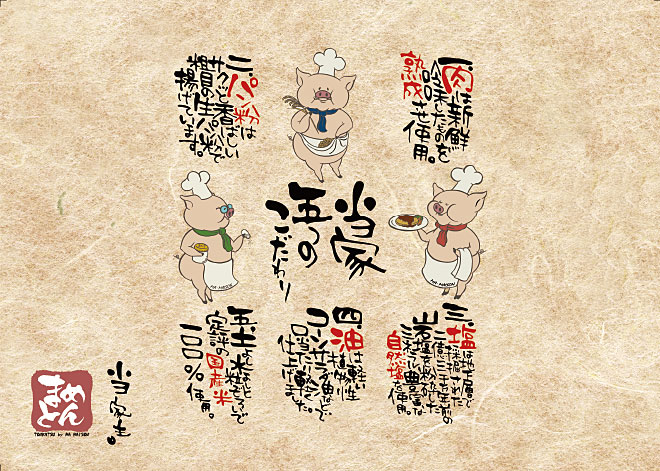 当家
五つの
こだわり
一、肉は新鮮
したものを
熟成させ使用。
二、パン粉は
サクッと香ばしい
粗目の生パン粉で
揚げています。
三、塩は地層で
採掘された
岩塩を粉砕した
ミネラル豊富な
自然塩を使用。
四、油は軽い
植物性
コーンサラダ油などで
口当たり軽く
仕上げました。
五、土と水
定評の国産米
一〇〇%使用。
当家主。
まめとん
TONKATSU by MA MAISON
MA MAISON
MA MAISON